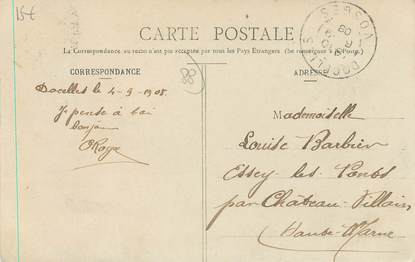 15€
CARTE POSTALE
La Correspondance au recto n'est pas acceptée par tous les Pays Étrangers (Se renseigner à la Poste).
CORRESPONDANCE
ADRESSE
DOCELLES
VOSGES
88
Docelles le 4-9-1908
Je pense à toi
Mademoiselle
Louise Barbier
Essey les Ponts
par Château-Villain
Haute Marne